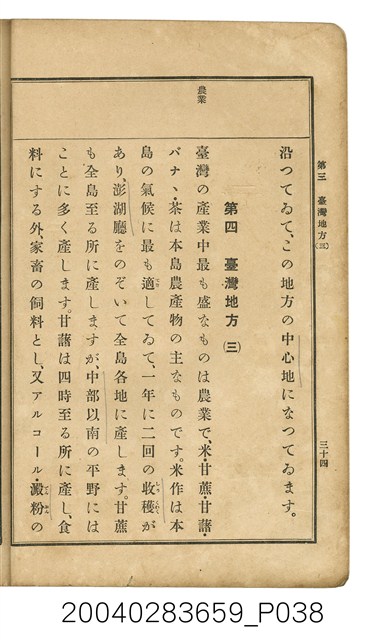 第三　臺灣地方(三)
三十四
沿つてゐて、この地方の中心地になつてゐます。
第四　臺灣地方(三)
農業
臺灣の產業中最も盛なものは農業で、米・甘蔗・甘藷・
バナヽ・茶は本島農產物の主なものです。米作は本
島の氣候に最も適してゐて、一年に二回の收穫が
あり、澎湖廳をのぞいて全島各地に產します。甘蔗
も全島至る所に產しますが、中部以南の平野には
ことに多く產します。甘藷は四時至る所に產し、食
料にする外、家畜の飼料とし、又アルコール・澱粉の
20040283659_P038